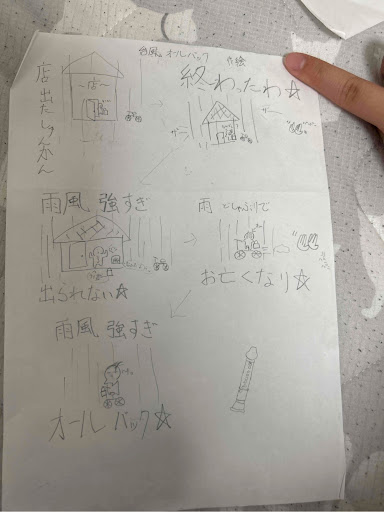 台風 オールバック
作 絵
店出た しゅんかん
~店~
終わったわ☆
ザー
ザー
雨風 強すぎ
出られない☆
雨 どしゃぶりで
お亡くなり☆
雨風 強すぎ
オール バック☆